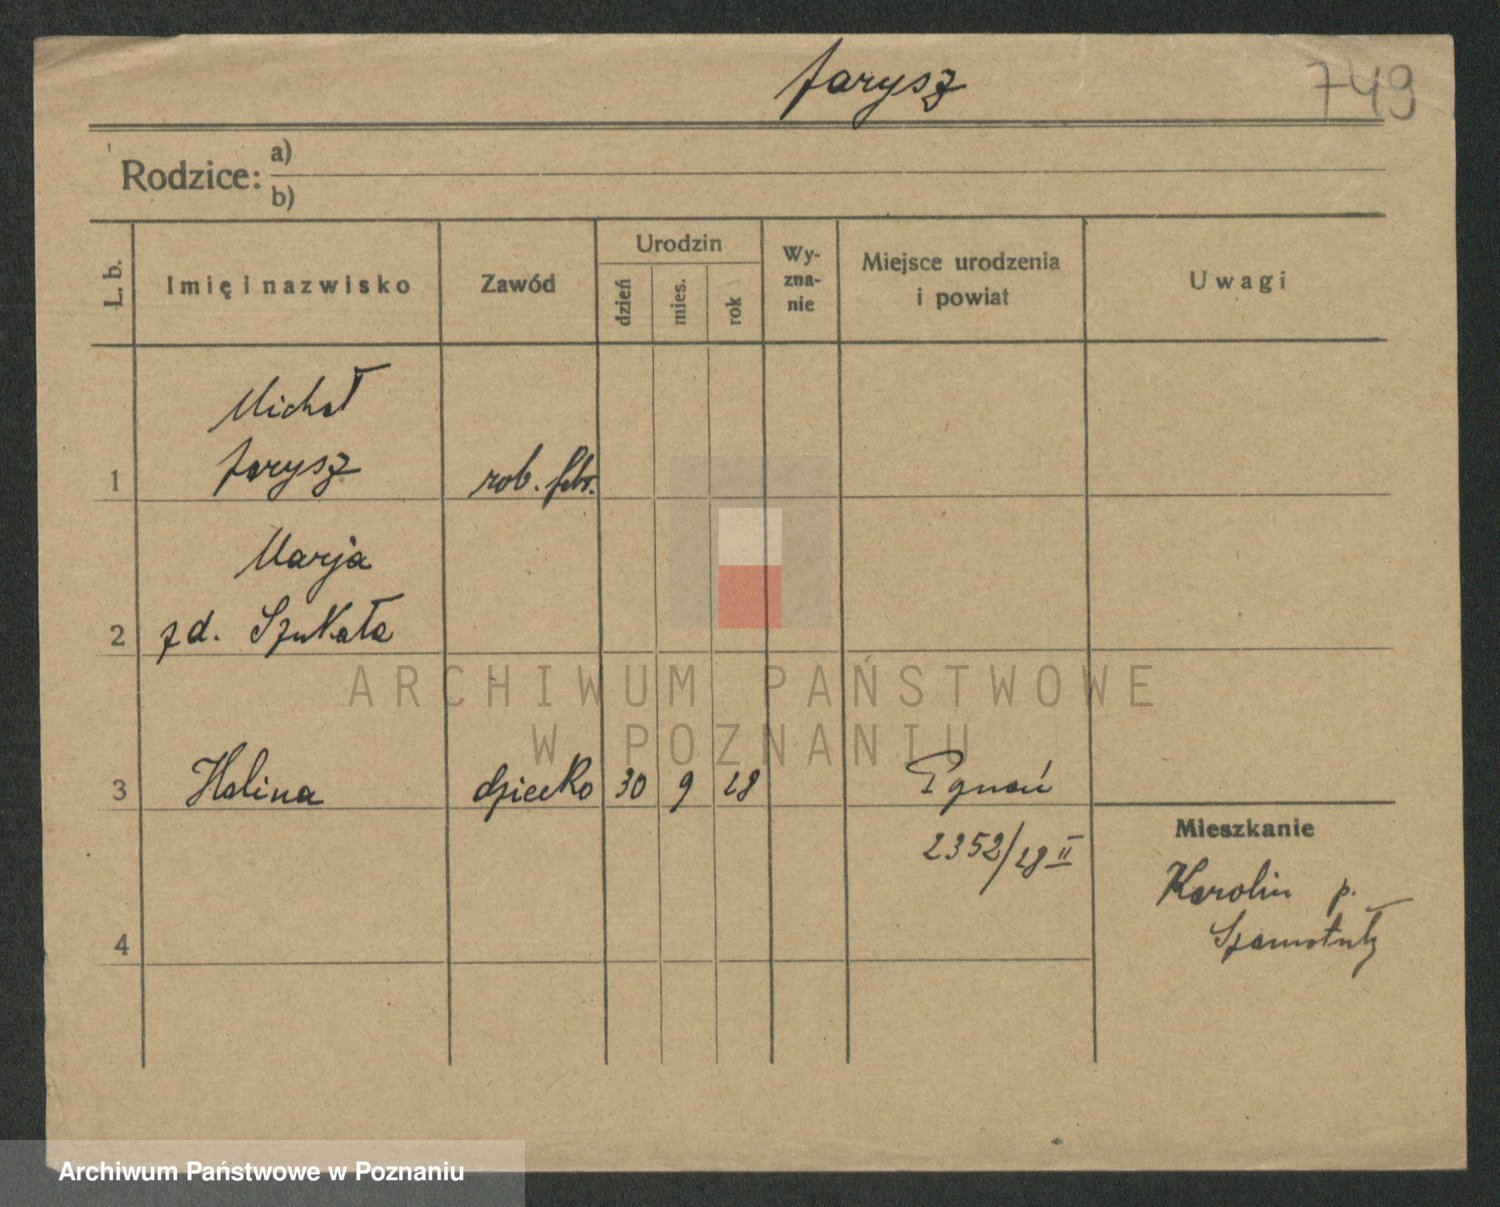 Jarysz
749
Rodzice: a)
b)
L. b.
Imię i nazwisko
Zawód
Urodzin
dzień
mies.
rok
Wy-
zna-
nie
Miejsce urodzenia
i powiat
Uwagi
Michał
1 Jarysz rob. fabr.
Marja
2 zd. Szukała
ARCHIWUM PAŃSTWOWE
W POZNANIU
3 Halina dziecko 30 9 28 Poznań
2352/28 II
Mieszkanie
Karolin p.
Szamotuły
4
Archiwum Państwowe w Poznaniu